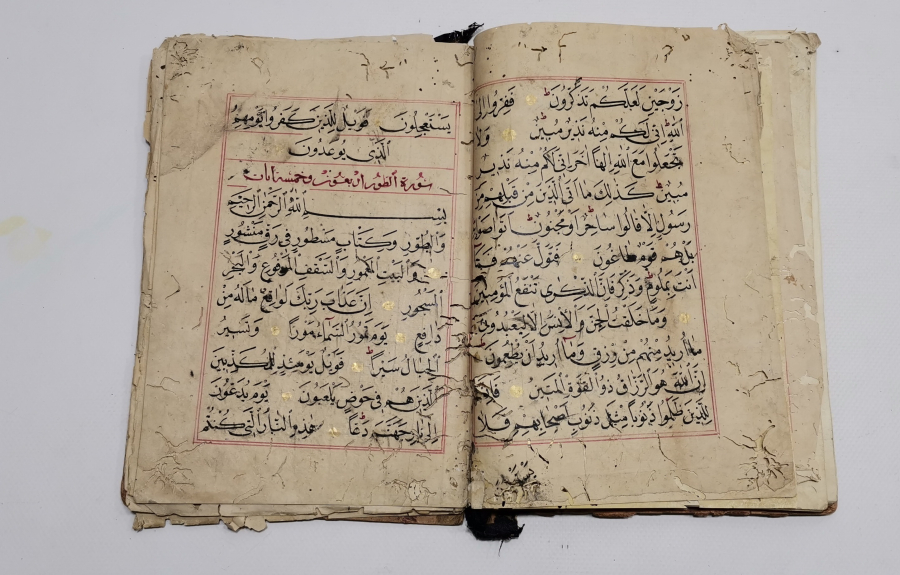 زَوْجَيْنِ لَعَلَّكُمْ تَذَكَّرُونَ فَفِرُّوا اِلَى
اللّٰهِ اِنّى لَكُمْ مِنْهُ نَذِيرٌ مُبِينٌ وَلَا
تَجْعَلُوا مَعَ اللّٰهِ اِلٰهًا اٰخَرَ اِنّى لَكُمْ مِنْهُ نَذِيرٌ
مُبِينٌ كَذٰلِكَ مَا اَتَى الَّذِينَ مِنْ قَبْلِهِمْ مِنْ
رَسُولٍ اِلَّا قَالُوا سَاحِرٌ اَوْ مَجْنُونٌ اَتَوَاصَوْا
بَلْ هُمْ قَوْمٌ طَاغُونَ فَتَوَلَّ عَنْهُمْ فَمَا
اَنْتَ بِمَلُومٍ وَذَكِّرْ فَاِنَّ الذِّكْرٰى تَنْفَعُ الْمُؤْمِنِينَ
وَمَا خَلَقْتُ الْجِنَّ وَالْاِنْسَ اِلَّا لِيَعْبُدُونِ
مَا اُرِيدُ مِنْهُمْ مِنْ رِزْقٍ وَمَا اُرِيدُ اَنْ يُطْعِمُونِ
اِنَّ اللّٰهَ هُوَ الرَّزَّاقُ ذُو الْقُوَّةِ الْمَتِينُ فَاِنَّ
لِلَّذِينَ ظَلَمُوا ذَنُوبًا مِثْلَ ذَنُوبِ اَصْحَابِهِمْ فَلَا
يَسْتَعْجِلُونِ فَوَيْلٌ لِلَّذِينَ كَفَرُوا مِنْ يَوْمِهِمُ
الَّذِى يُوعَدُونَ
سُورَةُ الطُّورِ
بِسْمِ اللّٰهِ الرَّحْمٰنِ الرَّحِيمِ
وَالطُّورِ وَكِتَابٍ مَسْطُورٍ فِى رَقٍّ مَنْشُورٍ
وَالْبَيْتِ الْمَعْمُورِ وَالسَّقْفِ الْمَرْفُوعِ وَالْبَحْرِ
الْمَسْجُورِ اِنَّ عَذَابَ رَبِّكَ لَوَاقِعٌ مَا لَهُ مِنْ
دَافِعٍ يَوْمَ تَمُورُ السَّمَاءُ مَوْرًا وَتَسِيرُ
الْجِبَالُ سَيْرًا فَوَيْلٌ يَوْمَئِذٍ لِلْمُكَذِّبِينَ
الَّذِينَ هُمْ فِى خَوْضٍ يَلْعَبُونَ يَوْمَ يُدَعُّونَ
اِلٰى نَارِ جَهَنَّمَ دَعًّا هٰذِهِ النَّارُ الَّتِى كُنْتُمْ